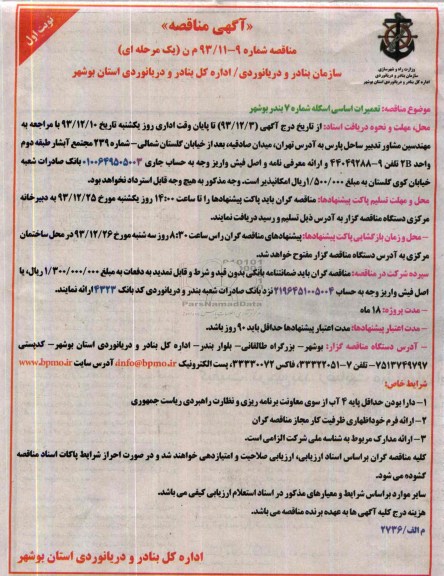 نوبت اول
«آگهی مناقصه»
مناقصه شماره ۹-۹۳/۱۱ م ن (یک مرحله ای)
سازمان بنادر و دریانوردی/ اداره کل بنادر و دریانوردی استان بوشهر
وزارت راه و شهرسازی
سازمان بنادر و دریانوردی
اداره کل بنادر و دریانوردی استان بوشهر
موضوع مناقصه: تعمیرات اساسی اسکله شماره ۷ بندر بوشهر
محل، مهلت و نحوه دریافت اسناد: از تاریخ درج آگهی (۹۳/۱۲/۳) تا پایان وقت اداری روز یکشنبه تاریخ ۹۳/۱۲/۱۰ با مراجعه به
مهندسین مشاور تدبیر ساحل پارس به آدرس تهران، میدان صادقیه، بعد از خیابان گلستان شمالی- شماره ۲۳۹ مجتمع آبشار طبقه دوم
واحد 2B تلفن ۹-۴۴۰۴۹۲۸۸ و ارائه معرفی نامه و اصل فیش واریز وجه به حساب جاری ۰۱۰۰۶۴۹۵۰۵۰۰۳ بانک صادرات شعبه
خیابان کوی گلستان به مبلغ ۱/۵۰۰/۰۰۰ ریال امکانپذیر است. وجه مذکور به هیچ وجه قابل استرداد نخواهد بود.
محل و مهلت تسلیم پاکت پیشنهادها: مناقصه گران باید پاکت پیشنهادها را تا ساعت ۱۴:۰۰ روز یکشنبه مورخ ۹۳/۱۲/۲۵ به دبیرخانه
مرکزی دستگاه مناقصه گزار به آدرس ذیل تسلیم و رسید دریافت نمایند.
- محل و زمان بازگشایی پاکت پیشنهادها: پیشنهادهای مناقصه گران راس ساعت ۸:۳۰ روز سه شنبه مورخ ۹۳/۱۲/۲۶ در محل ساختمان
مرکزی به آدرس دستگاه مناقصه گزار مفتوح خواهد شد.
سپرده شرکت در مناقصه: مناقصه گران باید ضمانتنامه بانکی بدون قید و شرط و قابل تمدید به دفعات به مبلغ ۱/۳۰۰/۰۰۰/۰۰۰ ریال، یا
اصل فیش واریز وجه به حساب ۲۱۹۶۴۵۱۰۰۵۰۰۴ نزد بانک صادرات شعبه بندر و دریانوردی کد بانک ۴۳۲۳ ارائه نمایند.
- مدت پروژه: ۱۸ ماه
- مدت اعتبار پیشنهادها: مدت اعتبار پیشنهادها حداقل باید ۹۰ روز باشد.
- آدرس دستگاه مناقصه گزار: بوشهر- بزرگراه طالقانی- بلوار بندر- اداره کل بنادر و دریانوردی استان بوشهر- کدپستی
۷۵۱۳۷۴۹۷۹۷- تلفن ۷-۳۳۳۲۲۰۵۱ فاکس ۳۳۳۳۰۰۷۲، پست الکترونیک info@bpmo.ir، آدرس سایت www.bpmo.ir
شرایط خاص:
۱- دارا بودن حداقل پایه ۴ آب از سوی معاونت برنامه ریزی و نظارت راهبردی ریاست جمهوری
۲- ارائه فرم خوداظهاری ظرفیت کار مجاز مناقصه گران
۳- ارائه مدارک مربوط به شناسه ملی شرکت الزامی است.
کلیه مناقصه گران براساس اسناد ارزیابی، ارزیابی صلاحیت و امتیازدهی خواهند شد و در صورت احراز شرایط پاکات اسناد مناقصه
گشوده می شود.
سایر موارد براساس شرایط و معیارهای مذکور در اسناد استعلام ارزیابی کیفی می باشد.
هزینه درج کلیه آگهی ها به عهده برنده مناقصه می باشد.
م الف/۲۷۳۶
اداره کل بنادر و دریانوردی استان بوشهر